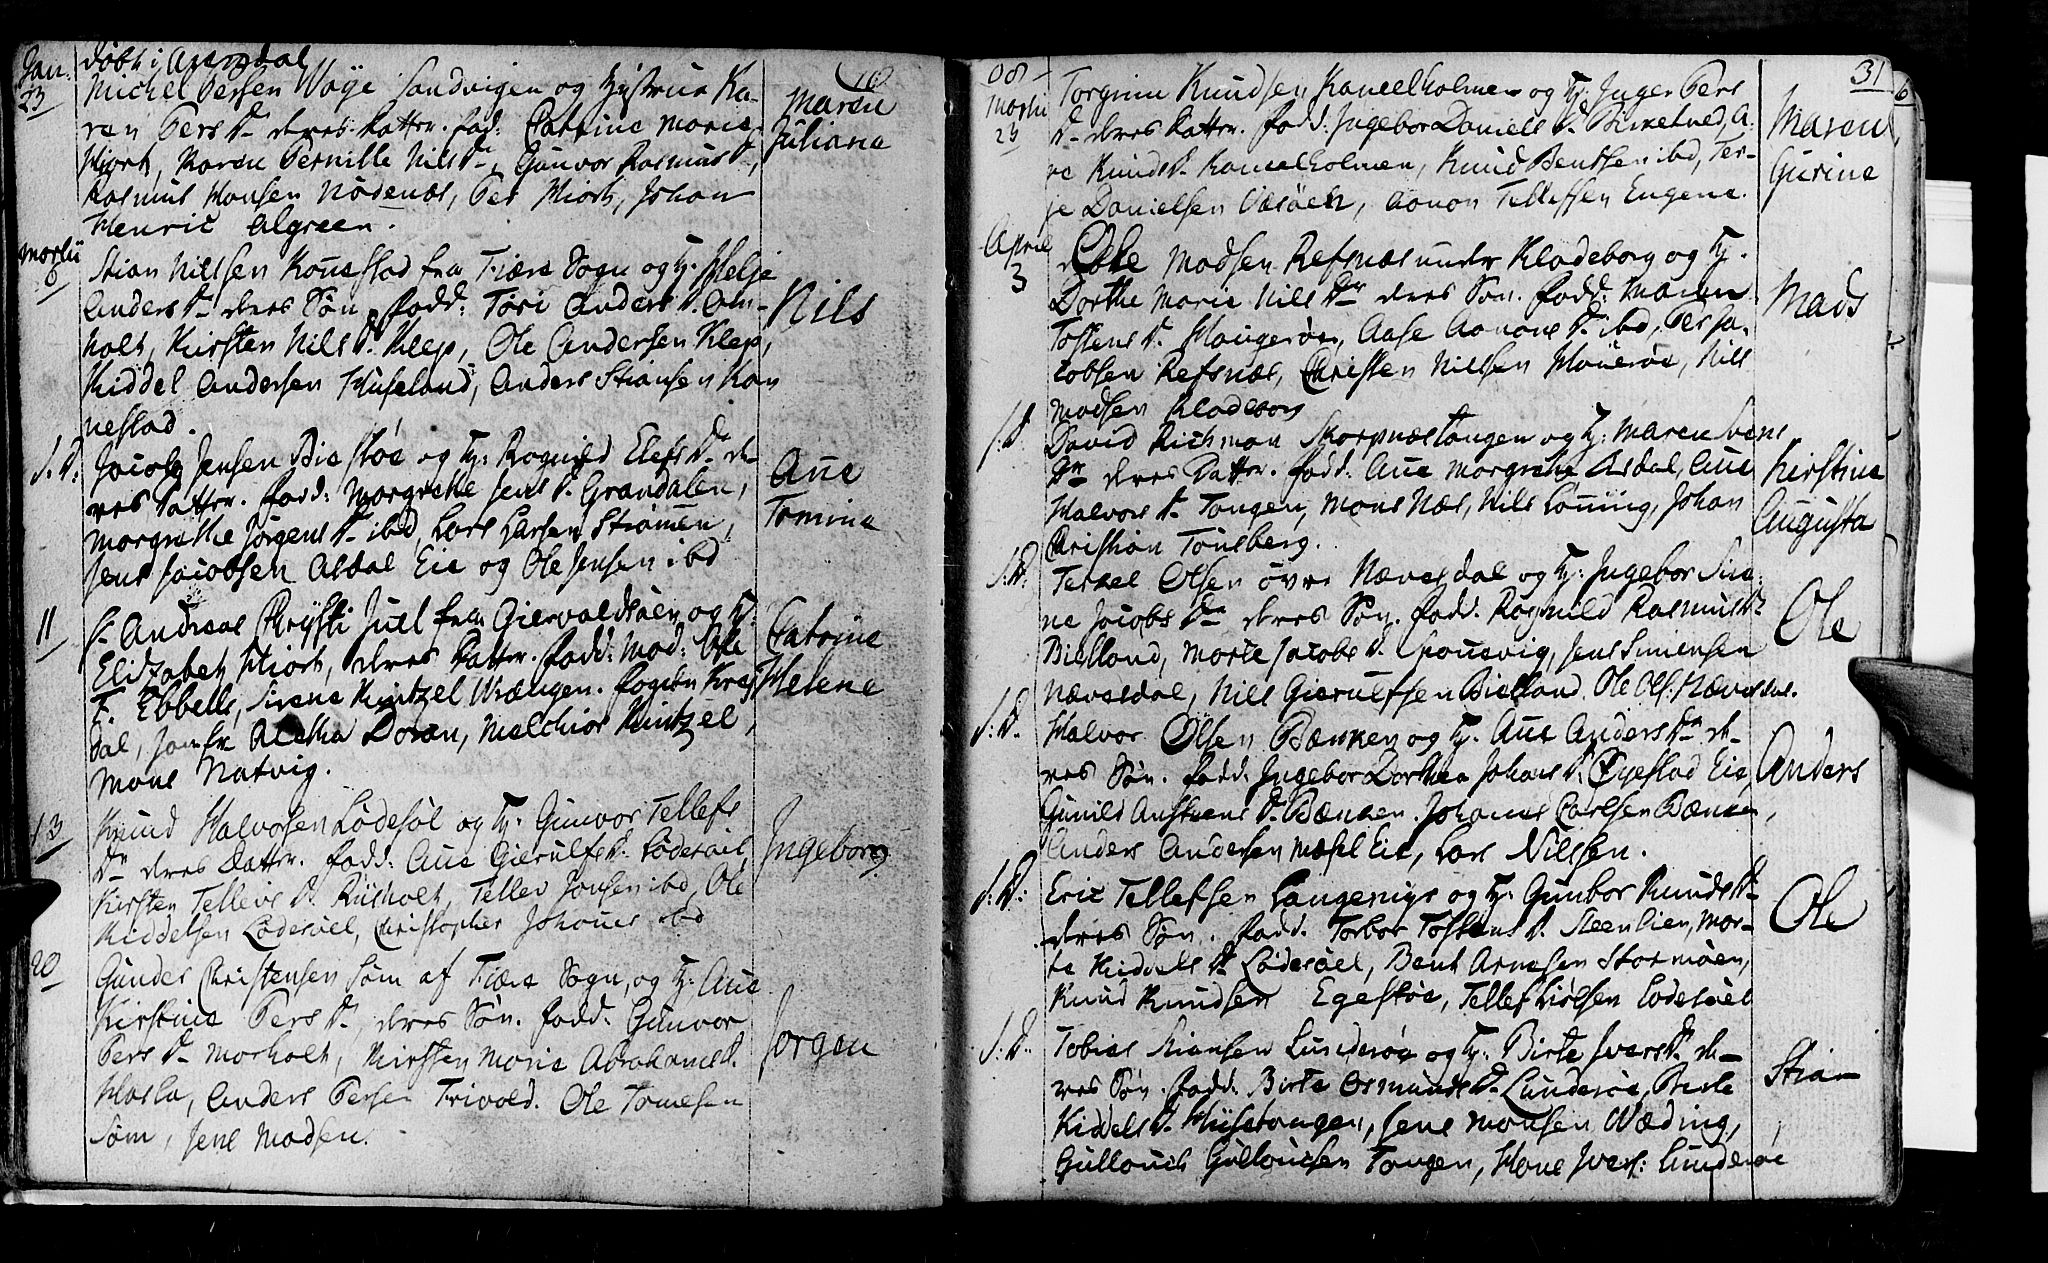 Jan:
23
døbt i Arendal
Michel Persen Wåge Sandvigen og Hustrue Ka-
ren Pers D. deres Dattr. fad: Catrine Marie
Hiort, Karen Pernille Nils D., Gunvor Rasmus D.,
Rasmus Hansen Nødenæs, Per Hiort, Johan
Henric Algreen.
Maren
Juliana
Martii
6
Stian Nilssen Konestad fra Tiære Sogn og H: Helje
Anders D. deres Søn, fadd: Tori Anders D. Om-
holt, Kirsten Nils D. Klep, Ole Andersen Klep,
Kiddel Andersen Huseland, Anders Stiansen Kon
nestad.
Nils
S. D:
Jacob Jensen Biestøe og H: Ragnild Elefs D. de-
res Dattr. fadd: Margrethe Jens D. Grandalen,
Margrethe Jørgens D. ibd, Lars Larsen Strømen,
Jens Jacobsen Asdal Eie og Ole Jensen ibd
Ane
Tomine
11
Sr. Andreas Juel fra Giervaldsøen og H:
Elizabet Hiort, deres Dattr. fadd: Mad: Ole
F. Ebbells, Sirene Kintzel Wrængen. fogden
dal, Jomfr Aletha Doran, Melchior Kintzel,
Mons Natvig.
Catrine
Helene
13
Knud Halvorsen Lødesøl og H: Gunvor Tellefs
D. deres Dattr. fadd: Ane Gierulfs D. Lødesøel
Kirsten Tellevs D. Risholt, Tellev Jonsen ibd, Ole
Kiddelsen Lødesøel, Christopher Johannes ibd
Ingeborg
20
Gunder Christensen Søm af Tiære Sogn, og H: Ane
Kirstine Pers D., deres Søn. fadd. Gunvor
Pers D. Morholt, Kirsten Marie Abrahams D.
Hasla, Anders Persen Trivold. Ole Tomesen
Søm, Jens Madsen.
Jørgen
31
08
Martii
23
Torgrim Knudsen Kaneelholmen og H: Inger Pers
D. deres Dattr. fadd: Ingebor Daniels D. Birketved, A-
ne Knuds D. Kaneelholmen, Knud Bentsen ibd, Ter-
je Danielsen Wæsøen, Aanon Tellefsen Engene.
Maren
Gurine
April
3
Ole Madsen Refsnæs under Kladeborg og H.
Dorthe Marie Nils D. deres Søn. fadd: Maren
Tostens D. Haugerøe, Aase Aanons D. ibd, Per Ja-
cobsen Refsnæs, Christen Nilssen Haverøe, Nils
Madsen Kladeborg
Mads
S. D
David Richman Skarpnæstangen og H: Maren Svens
D. deres Dattr. fadd: Ane Margrethe Asdal, Ane
Halvors D. Tangen, Mons Næs, Nils Louing, Johan
Christian Tønsberg.
Kirstine
Augusta
S. D:
Terkel Olsen øvre Nævesdal og H: Ingebor Sine
ne Jacobs D. deres Søn. fadd. Ragnild Rasmus D
Bielland, Marte Jacobs D. Spousvig, Jens Simensen
Nævesdal, Nils Gierulfsen Bielland. Ole Ols: Nævesdal.
Ole
S. D.
Halvor Olsen Bænken og H. Ane Anders D. de-
res Søn. fadd. Ingebor Dorthea Johans D. Øyestad Eie,
Gunild Anstens D. Bænken. Johannes Carlsen Bænken,
Anders Andersen Mæsel Eie, Lars Nilssen.
Anders
S: D:
Eric Tellefsen Langenige og H: Gunbor Knuds D
deres Søn. fadd. Torbor Tostens D. Steenlien, Mar-
te Kiddels D Lødesøel, Bent Arnesen Stormøen,
Knud Knudsen Egestøe, Tellef Lødesøel
Ole
S: D.
Tobias Stiansen Lunderøe og H: Birte Ivers D. de-
res Søn. fadd. Birte Osmunds D. Lunderøe, Birte
Kiddels D. Husetangen, Jens Monsen Wæding,
Gullouch Gullouchsen Tangen, Hans Ivers: Lunderøe
Stian